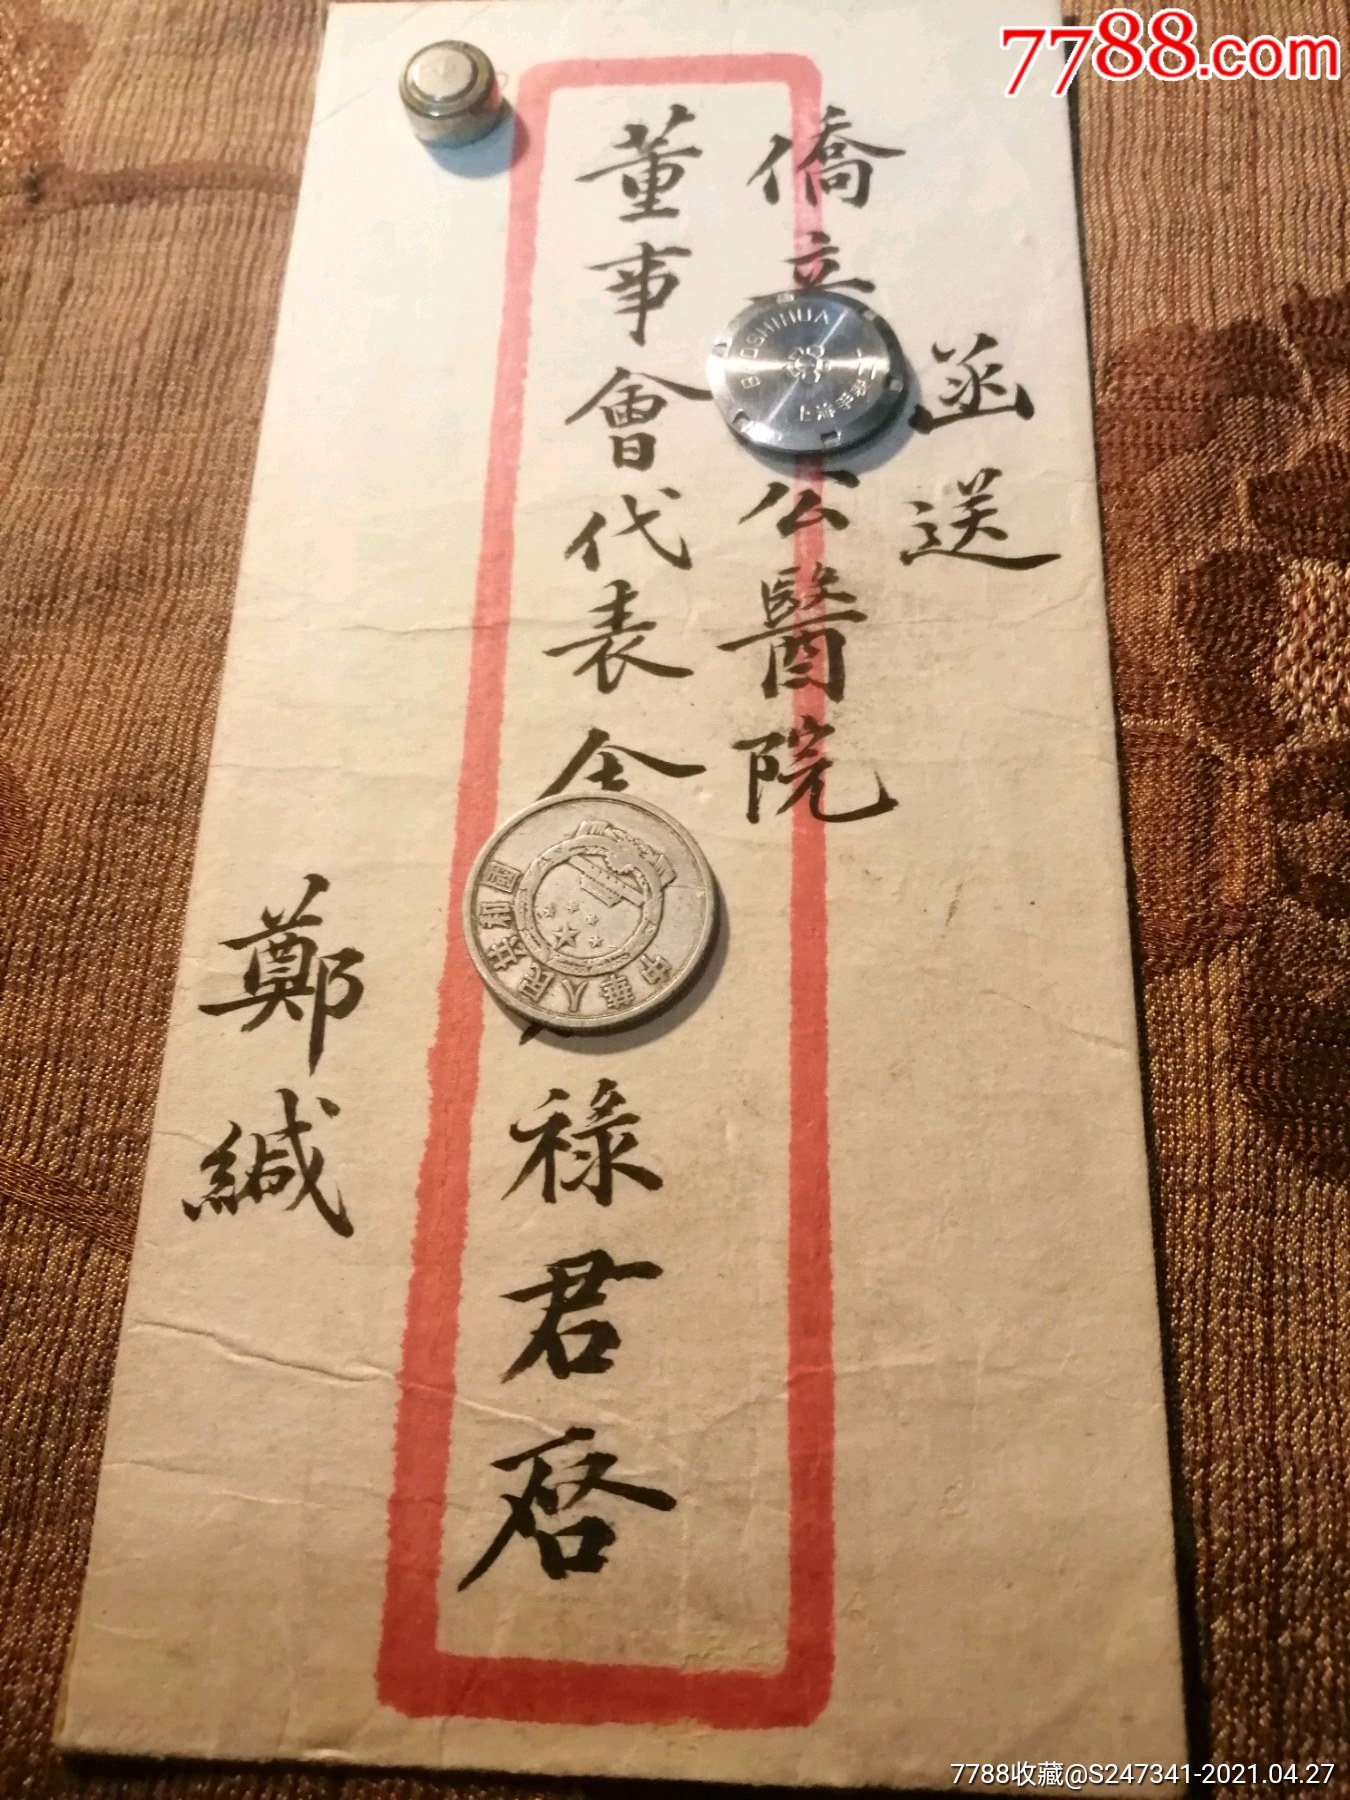 7788.com
函送
僑立
公醫院
董事會代表
祿君啓
鄭緘
BAOSHIHUA
上海
中華人民共和國
7788收藏@S247341-2021.04.27